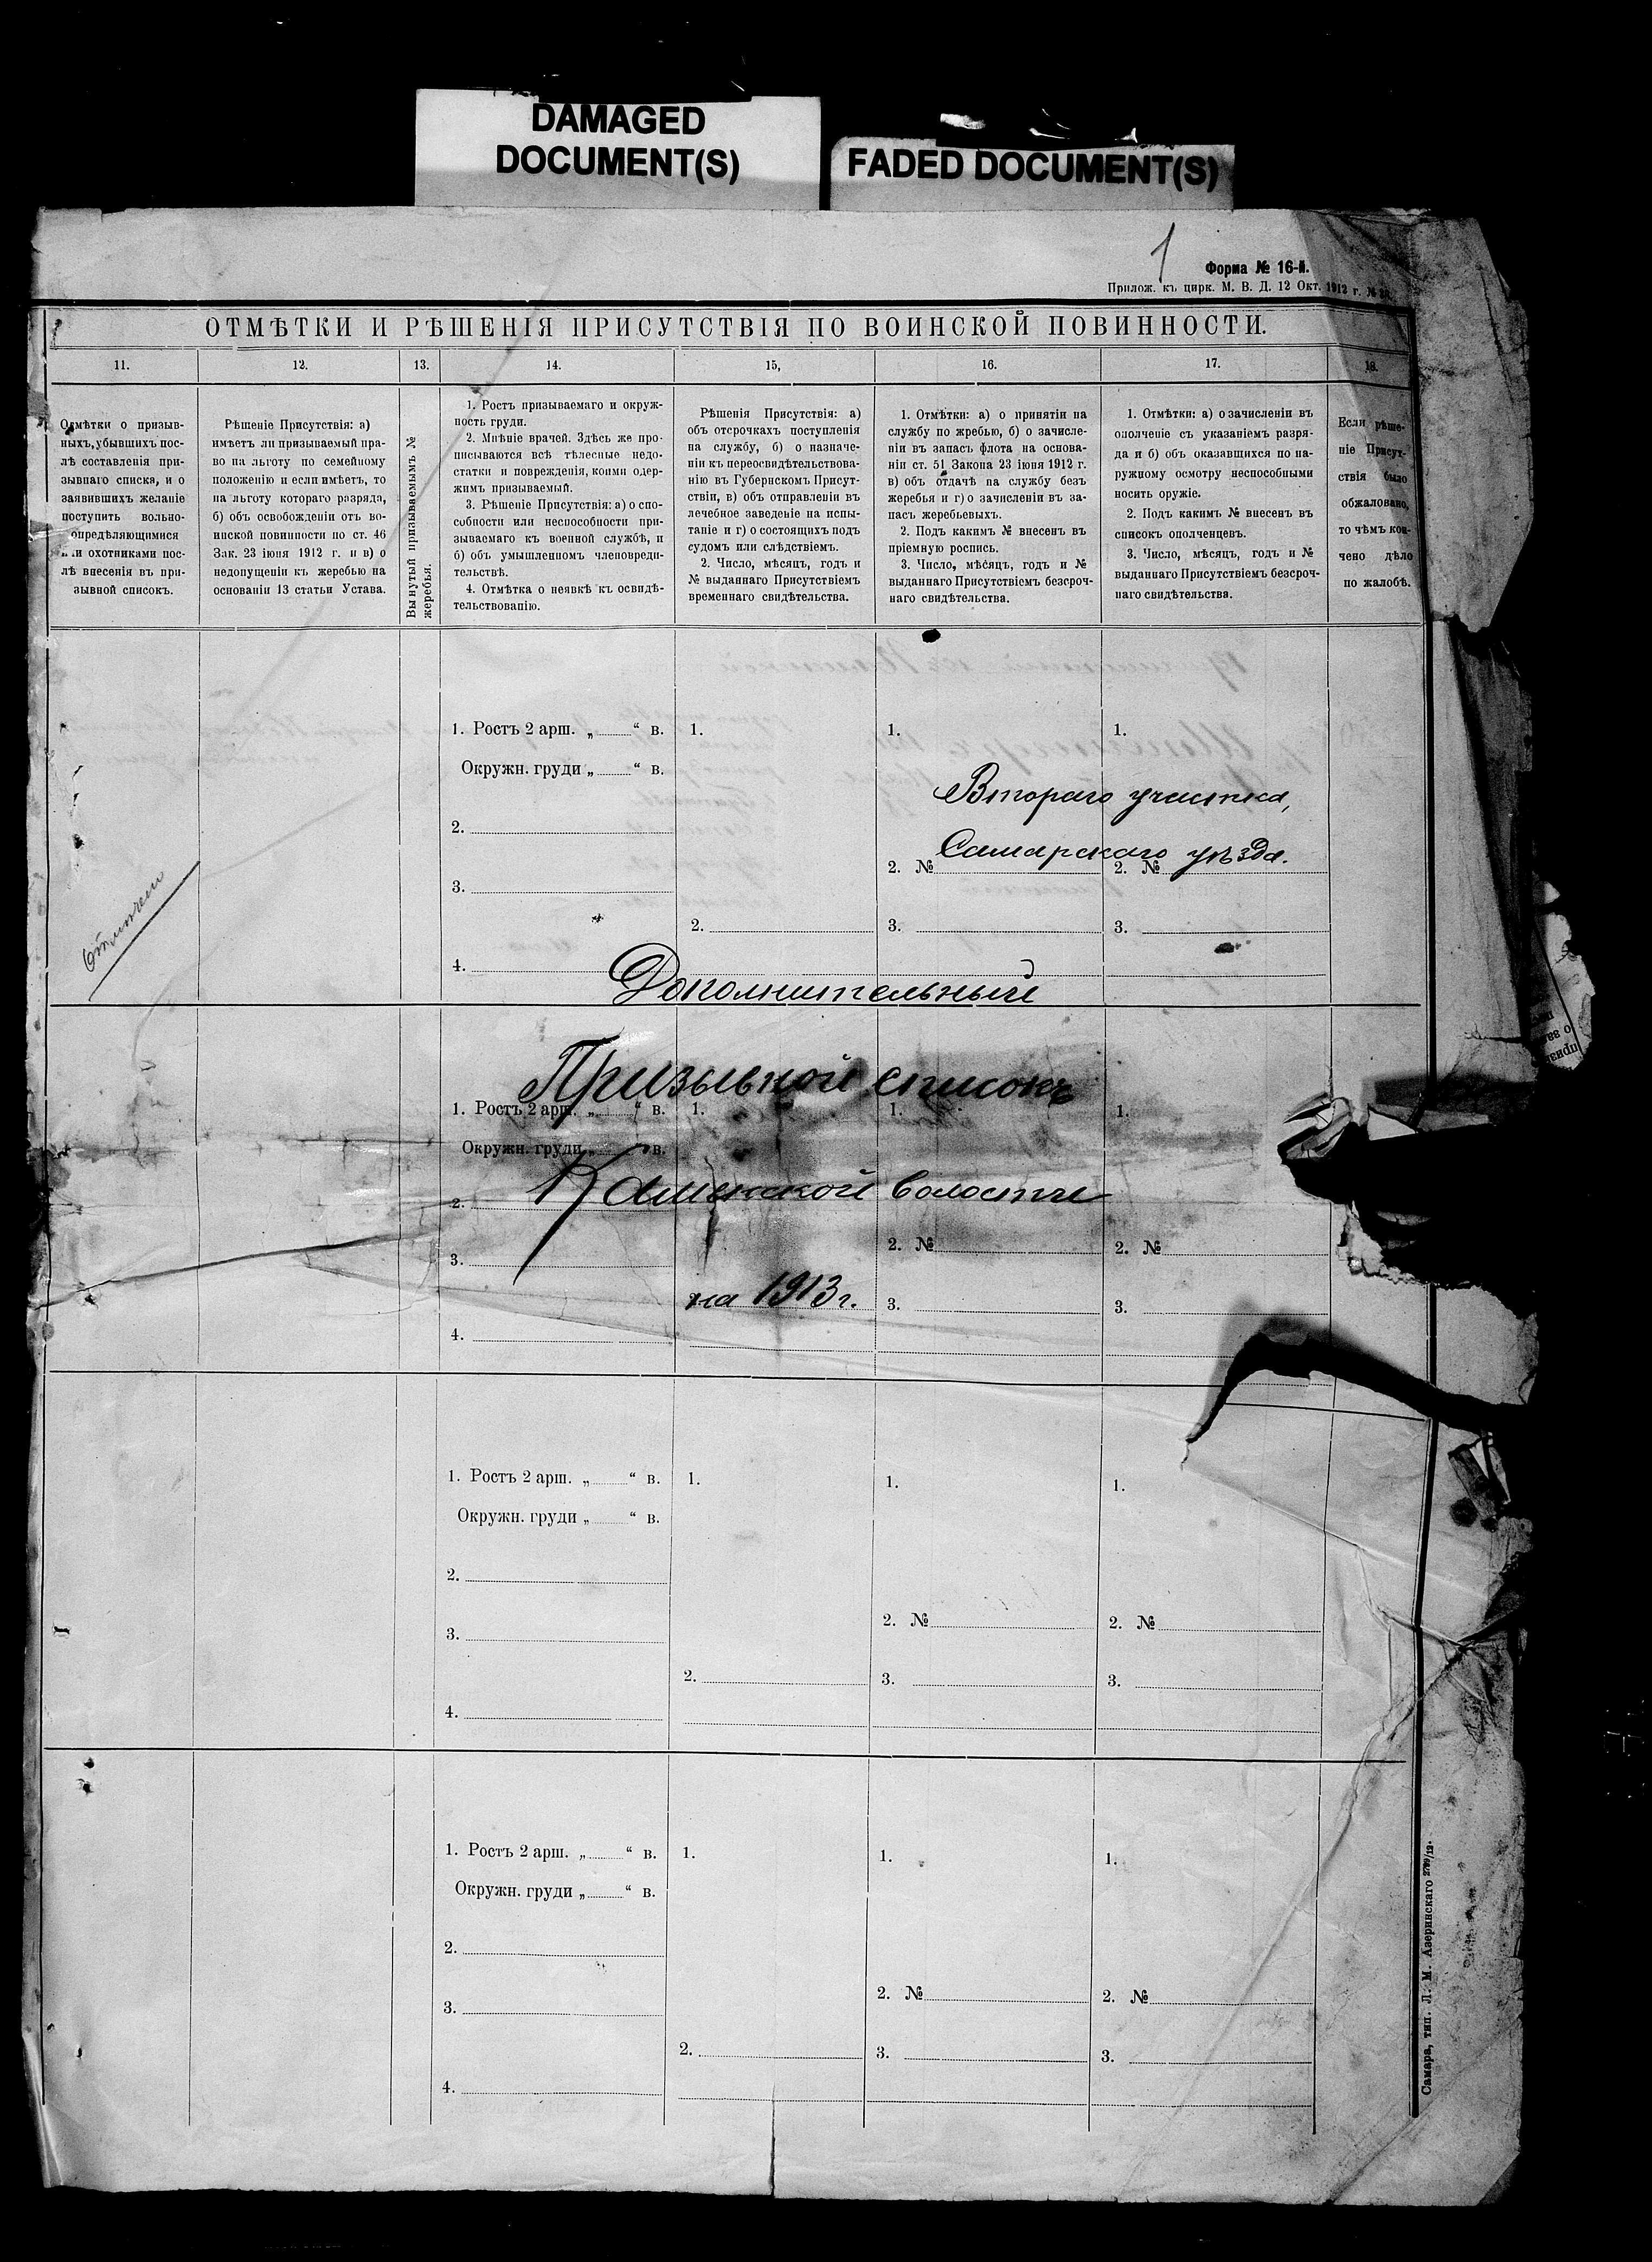 DAMAGED
DOCUMENT(S)
FADED DOCUMENT(S)
1
Форма № 16-й.
Прилож. къ цирк. М. В. Д. 12 Окт. 1912 г. №
ОТМѢТКИ И РѢШЕНІЯ ПРИСУТСТВІЯ ПО ВОИНСКОЙ ПОВИННОСТИ.
11.
12.
13.
14.
15,
16.
17.
18.
Отмѣтки о призыв-
ныхъ, убывшихъ пос-
лѣ составленія при-
зывнаго списка, и о
заявившихъ желаніе
поступить вольно-
опредѣляющимися
или охотниками пос-
лѣ внесенія въ при-
зывной списокъ.
Рѣшеніе Присутствія: а)
имѣетъ ли призываемый пра-
во на льготу по семейному
положенію и если имѣетъ, то
на льготу котораго разряда,
б) объ освобожденіи отъ во-
инской повинности по ст. 46
Зак. 23 іюня 1912 г. и в) о
недопущеніи къ жеребью на
основаніи 13 статьи Устава.
Вынутый призываемымъ №
жеребья.
1. Ростъ призываемаго и окруж-
ность груди.
2. Мнѣніе врачей. Здѣсь же про-
писываются всѣ тѣлесные недо-
статки и поврежденія, коими одер-
жимъ призываемый.
3. Рѣшеніе Присутствія: а) о спо-
собности или неспособности при-
зываемаго къ военной службѣ, и
б) объ умышленномъ членовреди-
тельствѣ.
4. Отмѣтка о неявкѣ къ освидѣ-
тельствованію.
Рѣшенія Присутствія: а)
объ отсрочкахъ поступленія
на службу, б) о назначе-
ніи къ переосвидѣтельствова-
нію въ Губернскомъ Присут-
ствіи, в) объ отправленіи въ
лечебное заведеніе на испы-
таніе и г) о состоящихъ подъ
судомъ или слѣдствіемъ.
2. Число, мѣсяцъ, годъ и
№ выданнаго Присутствіемъ
временнаго свидѣтельства.
1. Отмѣтки: а) о принятіи на
службу по жребью, б) о зачисле-
ніи въ запасъ флота на основа-
ніи ст. 51 Закона 23 іюня 1912 г.
в) объ отдачѣ на службу безъ
жеребья и г) о зачисленіи въ за-
пасъ жеребьевыхъ.
2. Подъ какимъ № внесенъ въ
пріемную роспись.
3. Число, мѣсяцъ, годъ и №
выданнаго Присутствіемъ безсроч-
наго свидѣтельства.
1. Отмѣтки: а) о зачисленіи въ
ополченіе съ указаніемъ разря-
да и б) объ оказавшихся по на-
ружному осмотру неспособными
носить оружіе.
2. Подъ какимъ № внесенъ въ
списокъ ополченцевъ.
3. Число, мѣсяцъ, годъ и №
выданнаго Присутствіемъ безсроч-
наго свидѣтельства.
Если рѣше-
ніе Присут-
ствія было
обжаловано,
то чѣмъ кон-
чено дѣло
по жалобѣ.
1. Ростъ 2 арш. „ “ в.
1.
1.
1.
Окружн. груди „ “ в.
Втораго участка,
2.
Самарскаго уѣзда.
2. №
2. №
3.
2.
3.
3.
4.
Дополнительный
Призывной списокъ
1. Ростъ 2 арш. „ “ в.
1.
1.
1.
Окружн. груди „ “ в.
Каменской волости
2.
2. №
2. №
3.
на 1913 г.
3.
3.
4.
1. Ростъ 2 арш. „ “ в.
1.
1.
1.
Окружн. груди „ “ в.
2.
2. №
2. №
3.
2.
3.
3.
4.
1. Ростъ 2 арш. „ “ в.
1.
1.
1.
Окружн. груди „ “ в.
2.
2. №
2. №
3.
2.
3.
3.
4.
Самара, тип. Л. М. Азеринскаго